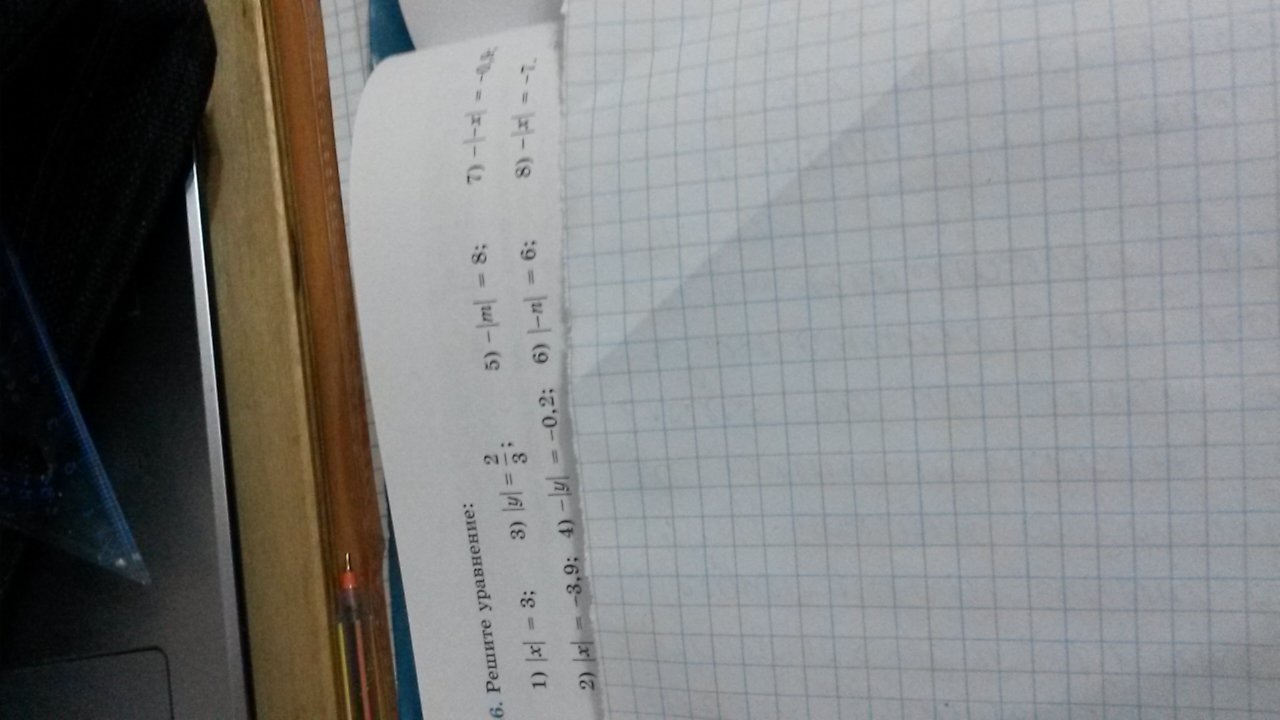 6. Решите уравнение:
1) |x| = 3; 3) |y| = 2/3; 5) −|m| = 8; 7) −|−x| =
2) |x| = −3,9; 4) −|y| = −0,2; 6) |−n| = 6; 8) −|x| = −7.